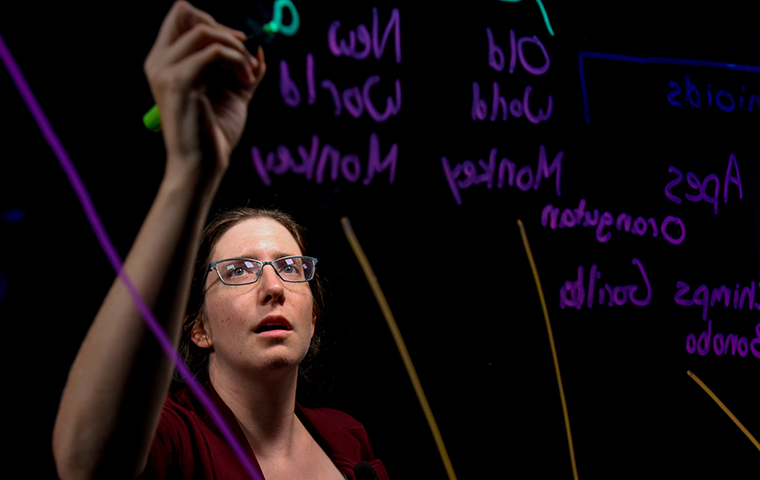 New
World
Monkey
Old
World
Monkey
inoids
Apes
Orangutan
Gorilla
Chimps
Bonobo